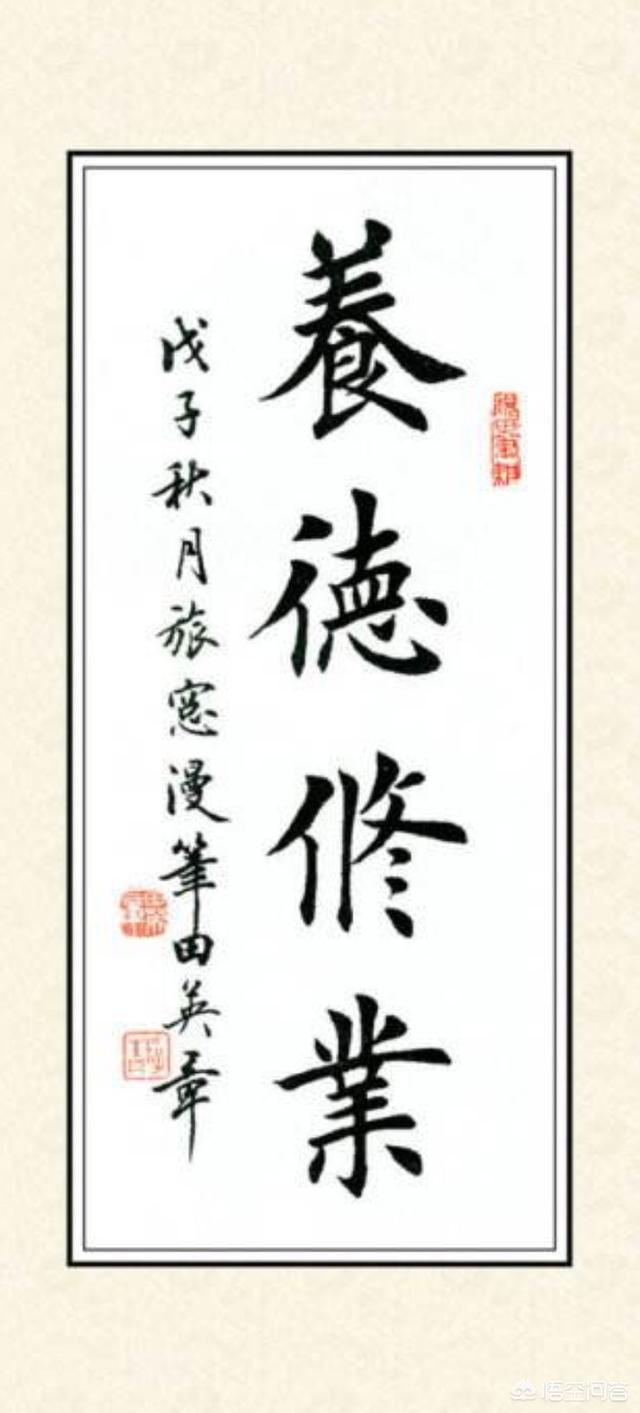 養德修業
戊子秋月旅窓漫筆田英章
悟空问答